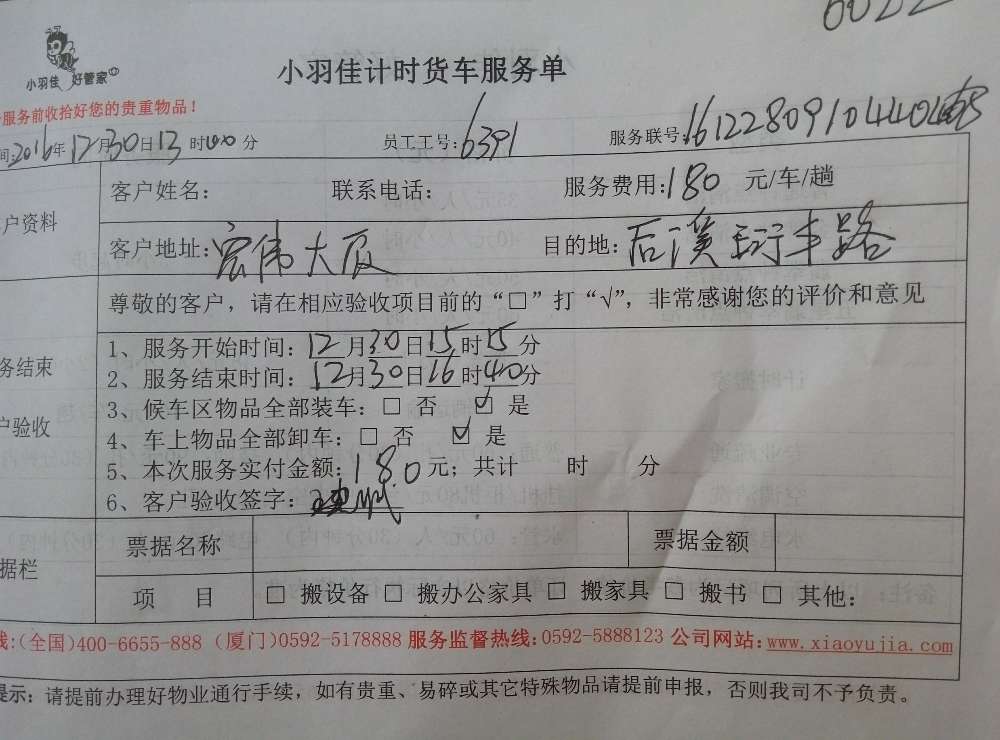 小羽佳 好管家
小羽佳计时货车服务单
服务前收拾好您的贵重物品！
间:2016年12月30日13时00分 员工工号:6391 服务联号:
户资料
客户姓名: 联系电话: 服务费用:180 元/车/趟
客户地址:宏伟大厦 目的地:后溪珩丰路
尊敬的客户，请在相应验收项目前的“□”打“√”，非常感谢您的评价和意见
务结束
户验收
1、服务开始时间：12月30日15时15分
2、服务结束时间：12月30日16时40分
3、候车区物品全部装车：□ 否 ☑ 是
4、车上物品全部卸车：□ 否 ☑ 是
5、本次服务实付金额:180元；共计 时 分
6、客户验收签字：
据栏
票据名称 票据金额
项 目 □ 搬设备 □ 搬办公家具 □ 搬家具 □ 搬书 □ 其他：
线:(全国)400-6655-888 (厦门)0592-5178888 服务监督热线:0592-5888123 公司网站:www.xiaoyujia.com
提示：请提前办理好物业通行手续，如有贵重、易碎或其它特殊物品请提前申报，否则我司不予负责。